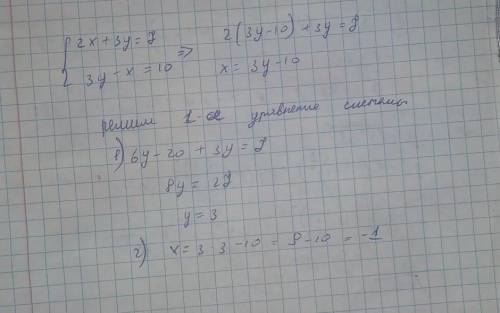 { 2x + 3y = 7 => 2(3y-10) + 3y = 7
3y - x = 10 x = 3y - 10
решим 1-ое уравнение системы
1) 6y - 20 + 3y = 7
9y = 27
y = 3
2) x = 3 · 3 - 10 = 9 - 10 = -1